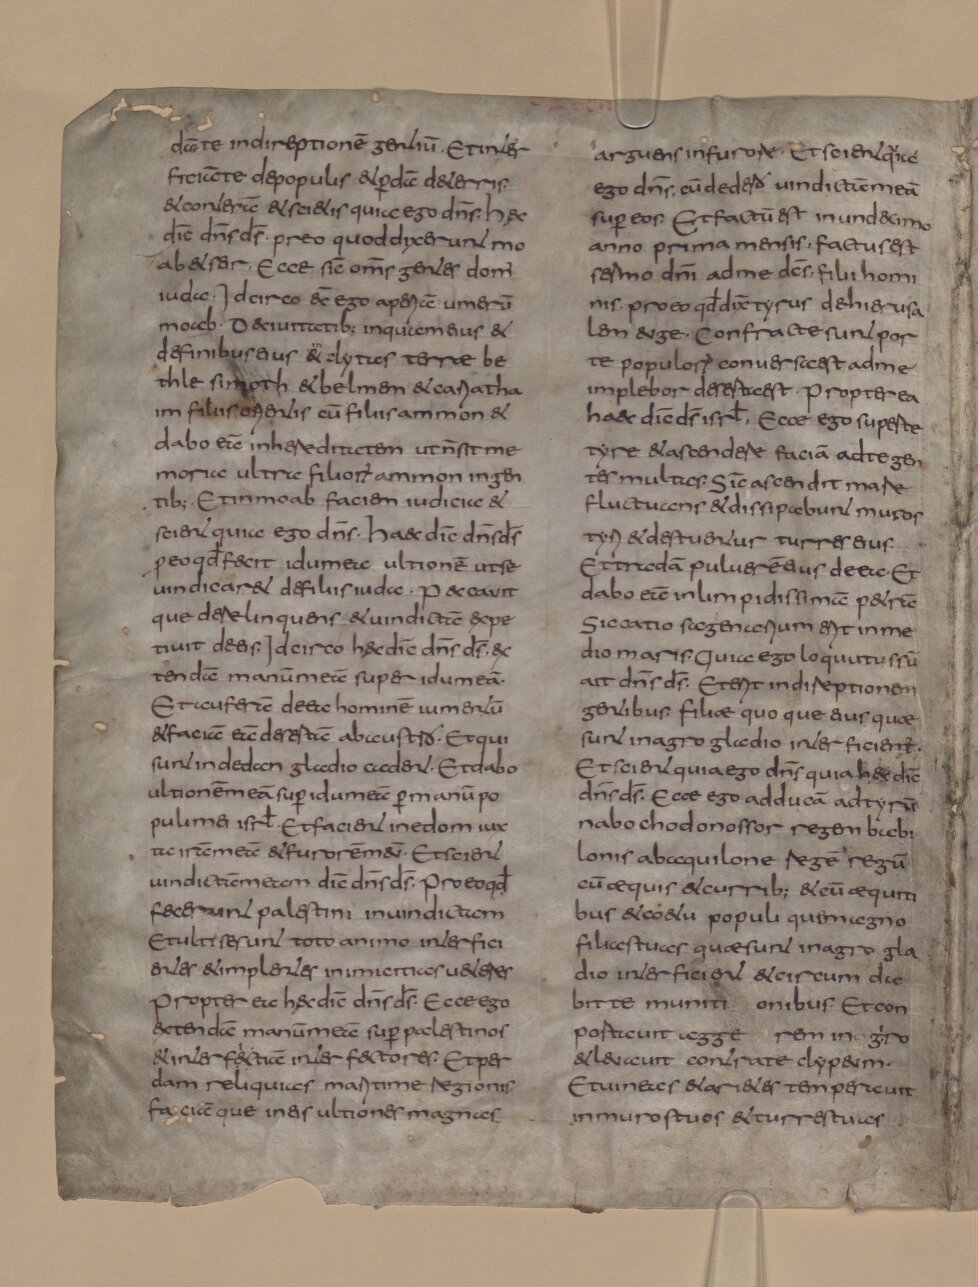 dabo te in direptionē gentiū. Et inter
ficiam te de populis & ꝑdā de terris.
& conteram & scies quia ego dn̄s. hæc
dic̄ dn̄s ds̄. pro eo quod dixerunt mo
ab & seir. Ecce sic̄ om̄s gentes dom
iuda. Idcirco ecc̄ ego aperiā umerū
moab. De ciuitatib; inquā eius &
de finibus eius & clytas terræ be
thle simoth & belmen & cariatha
im filiis orientis cū filiis ammon &
dabo eā in hereditatem ut n̄ sit me
moria ultra filioꝝ ammon in gen
tib;. Et in moab faciem iudicia &
scient quia ego dn̄s. hæc dic̄ dn̄s ds̄
ꝓ eo qđ fecit idumea ultionē ut se
uindicaret de filiis iuda. Peccauit
que derelinquens & uindictā expe
tiuit de eis. Idcirco hæc dic̄ dn̄s ds̄. ex
tendā manū meā super idumeā.
Et auferā de ea hominē iumentū
& faciā eā desertā ab austro. Et qui
sunt in dedan gladio cadent. Et dabo
ultionē meā suꝑ idumeā ꝑ manū po
puli mei isrl̄. Et facient in edom iux
ta irā meā & furorē mēū. Et scient
uindictā meam dic̄ dn̄s ds̄. Pro eo qđ
fecerunt palestini in uindictam
Et ulti se sunt toto animo interfici
entes & implentes inimicitias ueteres
Propter ea hæc dic̄ dn̄s ds̄. Ecce ego
extendā manū meā suꝑ palestinos
& interfectiā interfectores. Et per
dam reliquias maritime regionis
faciāque in eis ultiones magnas
arguens in furore. Et scient quia
ego dn̄s. cū dedero uindictā meā
suꝑ eos. Et factū est in undecimo
anno prima mensis. factus est
sermo dn̄i ad me dc̄s. fili homi
nis. pro eo qđ dix̄ tyrus de hierusa
lem euge. Confractæ sunt por
te populoꝝ conuersa est ad me
implebor deserta est. Propter ea
hæc dic̄ ds̄ isrl̄. Ecce ego super te
tyre & ascendere faciā ad te gen
tes multas. Sic̄ ascendit mare
fluctuans & dissipabunt muros
tyri & destruentur turres eius.
Et radā puluerē eius de ea. Et
dabo eā in limpidissimā petrā
Siccatio sagenarum erit in me
dio maris. Quia ego loquutus sū
ait dn̄s ds̄. Et erit in direptionem
gentibus. filiæ quo que eius quæ
sunt in agro gladio interficient.
Et scient quia ego dn̄s quia hæc dic̄
dn̄s ds̄. Ecce ego adducā ad tyrū
nabochodonossor regem babi
lonis ab aquilone regē regū
cū æquis & currib; & cū æquiti
bus & coetu populi qu&#101; magno
filias tuas quæ sunt in agro gla
dio interficient & circum da
bit te muniti onibus. Et con
portauit agge rem in giro
& leuauit contra te clypeum.
Et uineas & arietes temperauit
in muros tuos & turres tuas